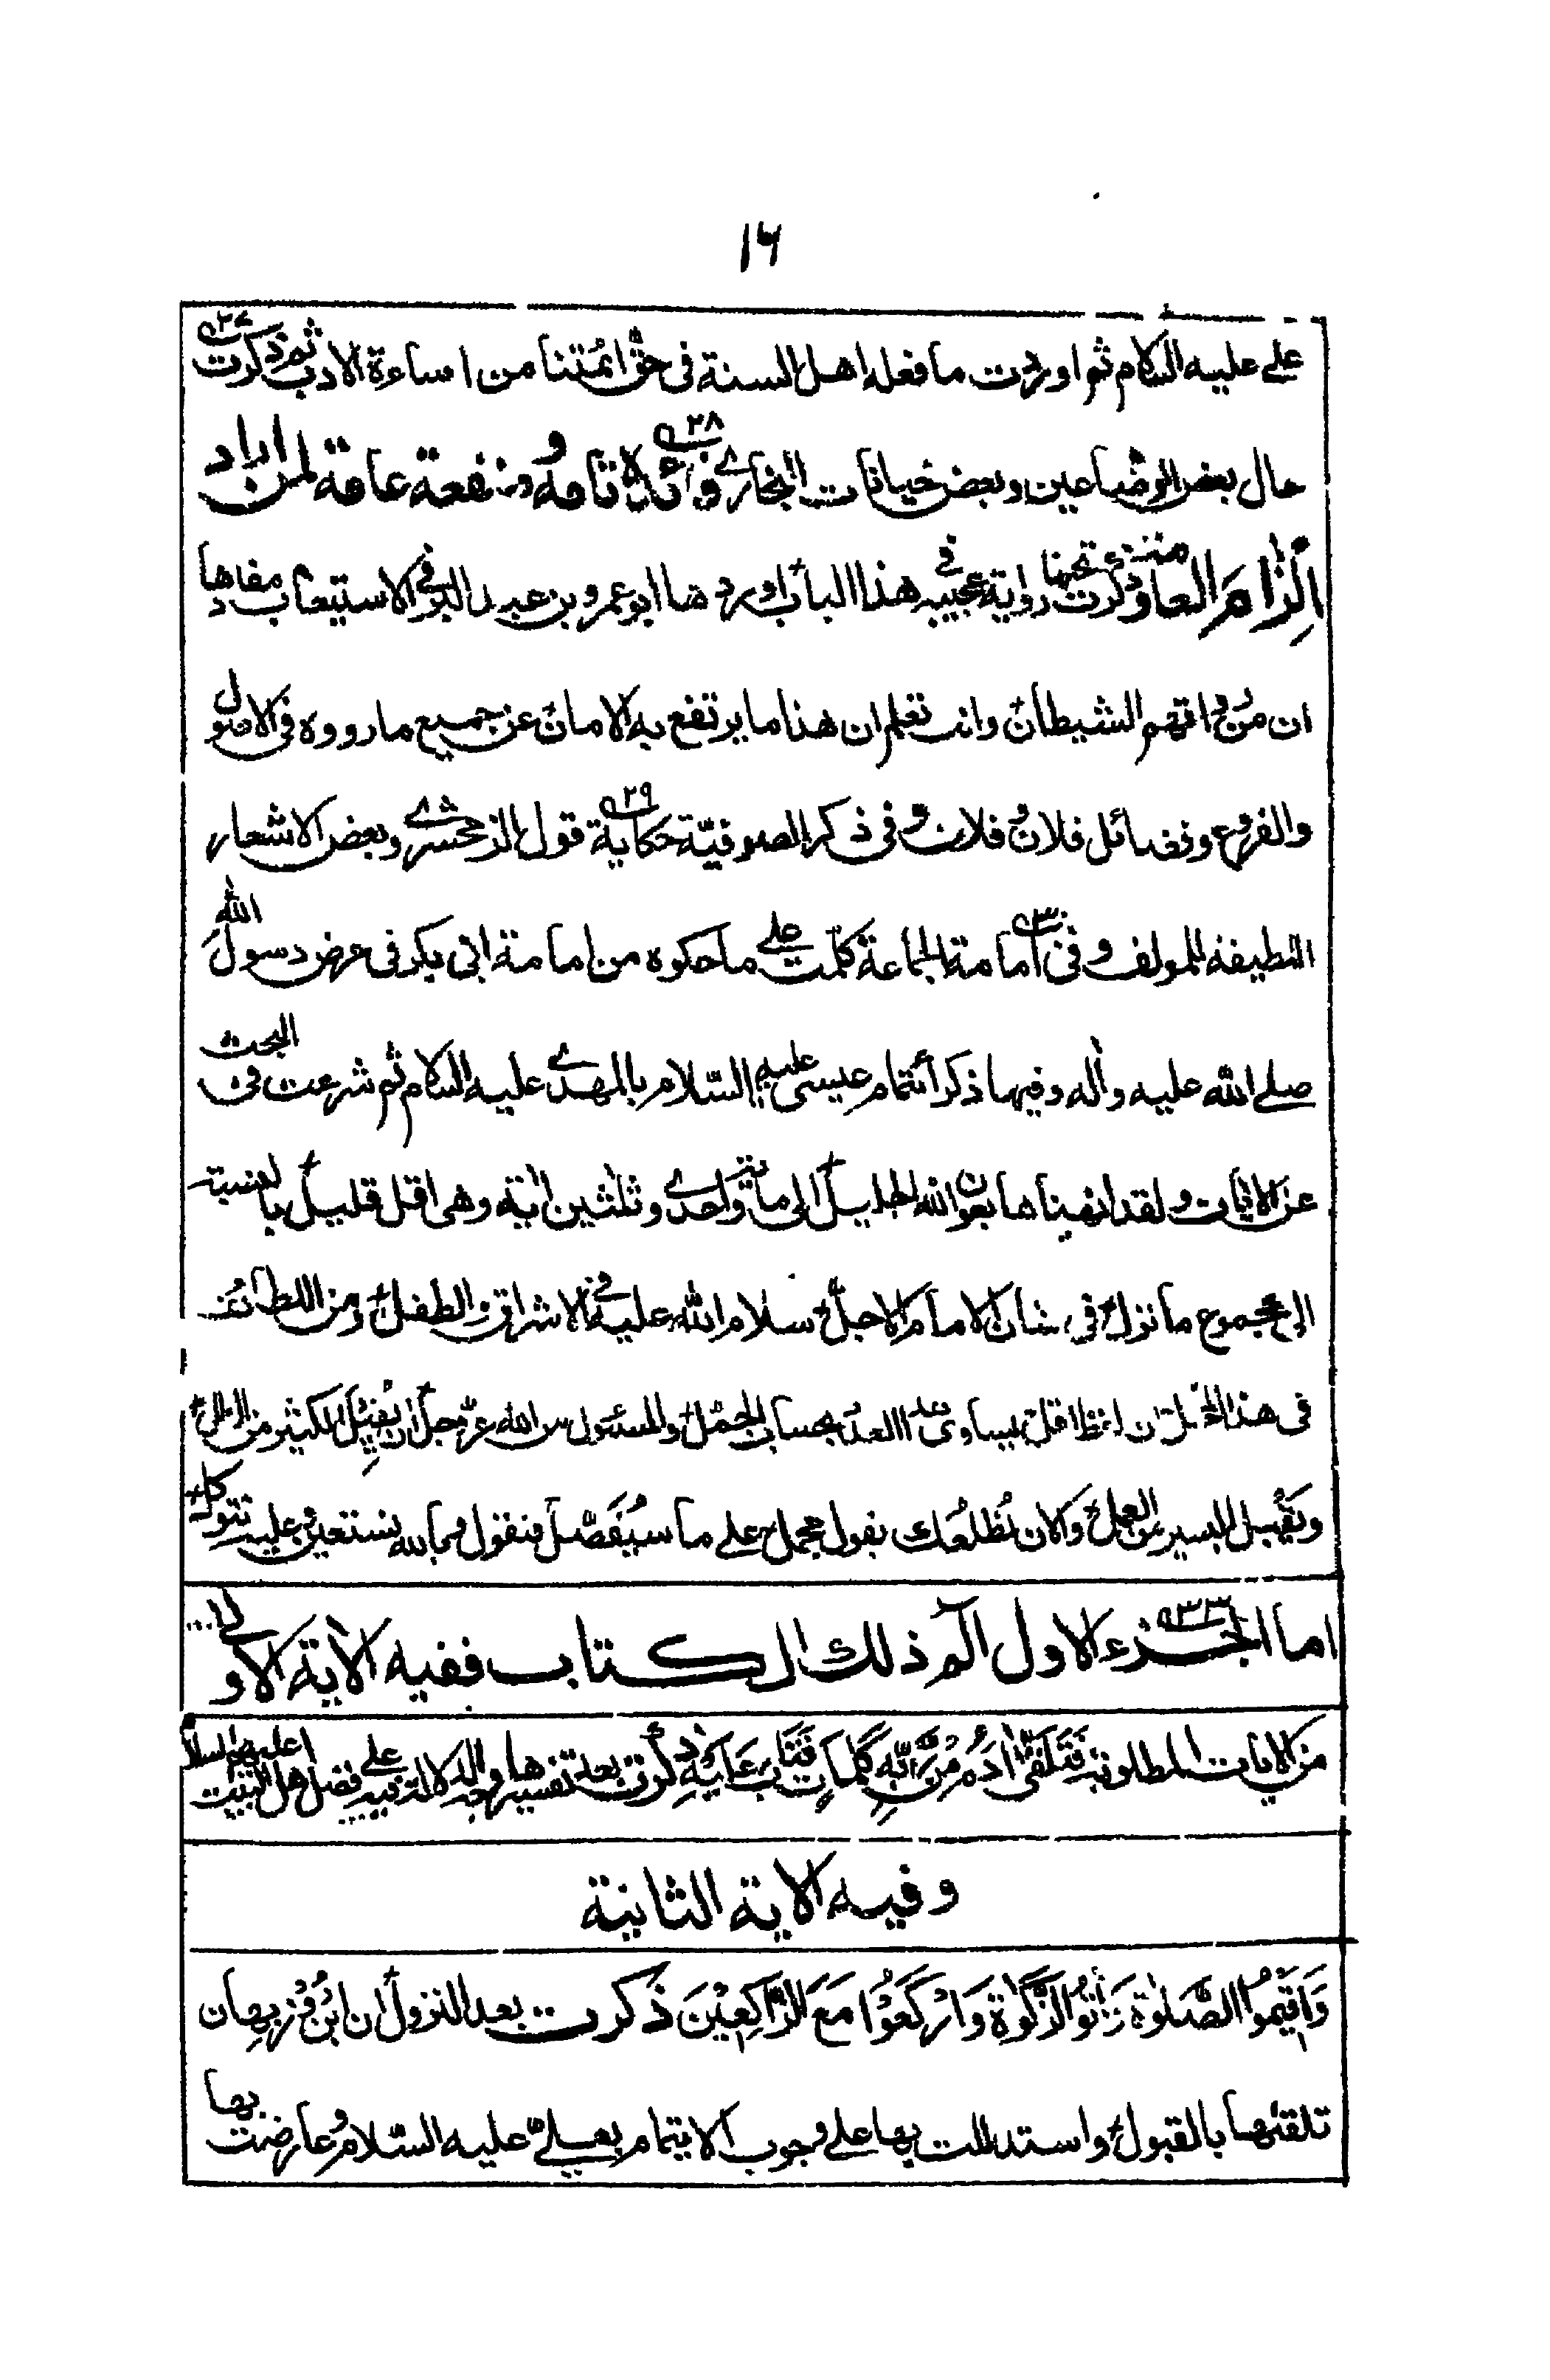 ١٦
على عليه السلام ثم اوردت ما فعله اهل السنة فى حق ائمتنا من اساءة الادب ثم ذكرت ٢٧
حال بعض الوضاعين وبعض خيانات البخارى ٢٨ فائدة تامة ومنفعة عامة لمن اراد
الزام العامة ذكرت تحتها رواية عجيبة فى هذا الباب اوردها ابو عمرو بن عبد البر فى الاستيعاب مفادها
ان من رواتهم الشيطان وانت تعلم ان هذا ما يرتفع به الامان عن جميع ما رووه فى الاصول
والفروع وفضائل فلان وفلان وفى ذكر الصوفية حكاية ٢٩ قول الزمخشرى وبعض الاشعار
اللطيفة للمولف وفى امامة الجماعة كلمت على ما حكوه من امامة ابى بكر فى عرض رسول الله
صلى الله عليه واله وفيها ذكر ائتمام عيسى عليه السلام بالمهدى عليه السلام ثم شرعت فى البحث
عن الايات ولقد انهيناها بعون الله الجليل الى مائة واحدى وثلثين اية وهى اقل قليل بالنسبة
الى مجموع ما نزل فى شان الامام الاجل سلام الله عليه فى الاشراق والطفل ومن اللطائف
فى هذا ان لفظ اقل يساوى هذا العدد بحساب الجمل والمسئول من الله عز وجل ان يقيل الكثير من الزلل
ويقبل اليسير من العمل والان نطلعك بقول مجمل على ما سيفصل فنقول وبالله نستعين وعليه نتوكل
اما الجزء الاول ٣٣ الم ذلك الكتاب ففيه الاية الاولى
من الايات المطلوبة فتلقى ادم من ربه كلمات فتاب عليه ذكرت بعد تفسيرها وجه الدلالة فيه على فضل اهل البيت عليهم السلام
وفيه الاية الثانية
وَاَقِيْمُوا الصَّلٰوةَ وَاٰتُوا الزَّكٰوةَ وَارْكَعُوْا مَعَ الرَّاكِعِيْنَ ذكرت بعد النزول ان ابن روزبهان
تلقتها بالقبول واستدللت بها على وجوب الايتمام بعلى عليه السلام وعارضت بها